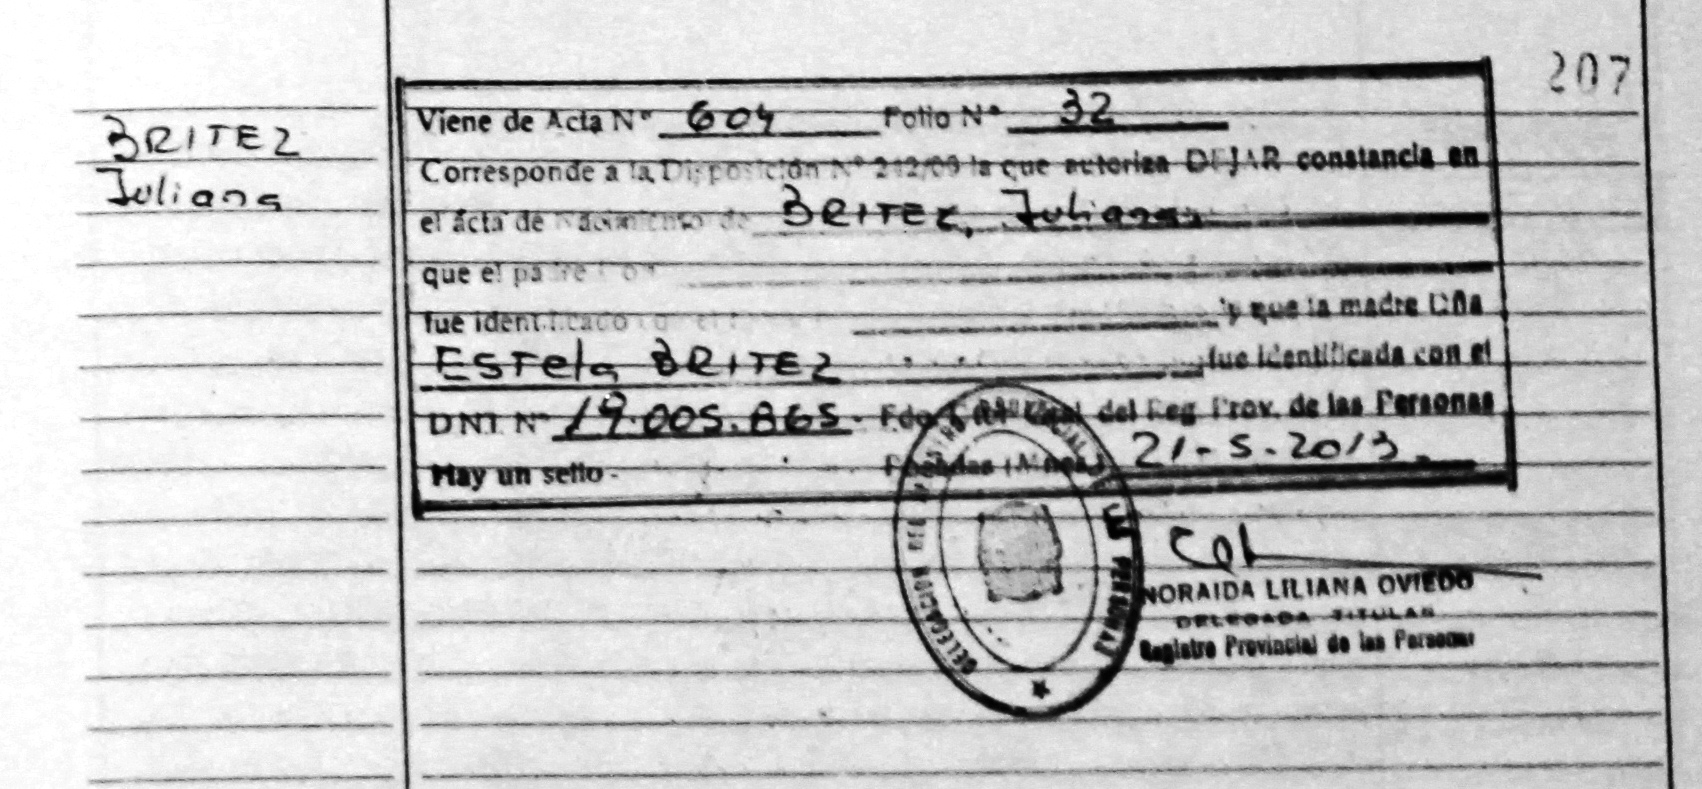 207
BRITEZ
Juliana
Viene de Acta N° 604 Folio N° 32
Corresponde a la Disposición N° 212/09 la que autoriza DEJAR constancia en
el acta de Nacimiento de BRITEZ, Juliana
que el padre
fue identificado y que la madre Dña
Estela BRITEZ fue identificada con el
DNI. N° 19.005.865. del Reg. Prov. de las Personas
Hay un sello - Posadas 21-5-2013.
DELEGACION DEL REGISTRO DE LAS PERSONAS
NORAIDA LILIANA OVIEDO
DELEGADA TITULAR
Registro Provincial de las Personas